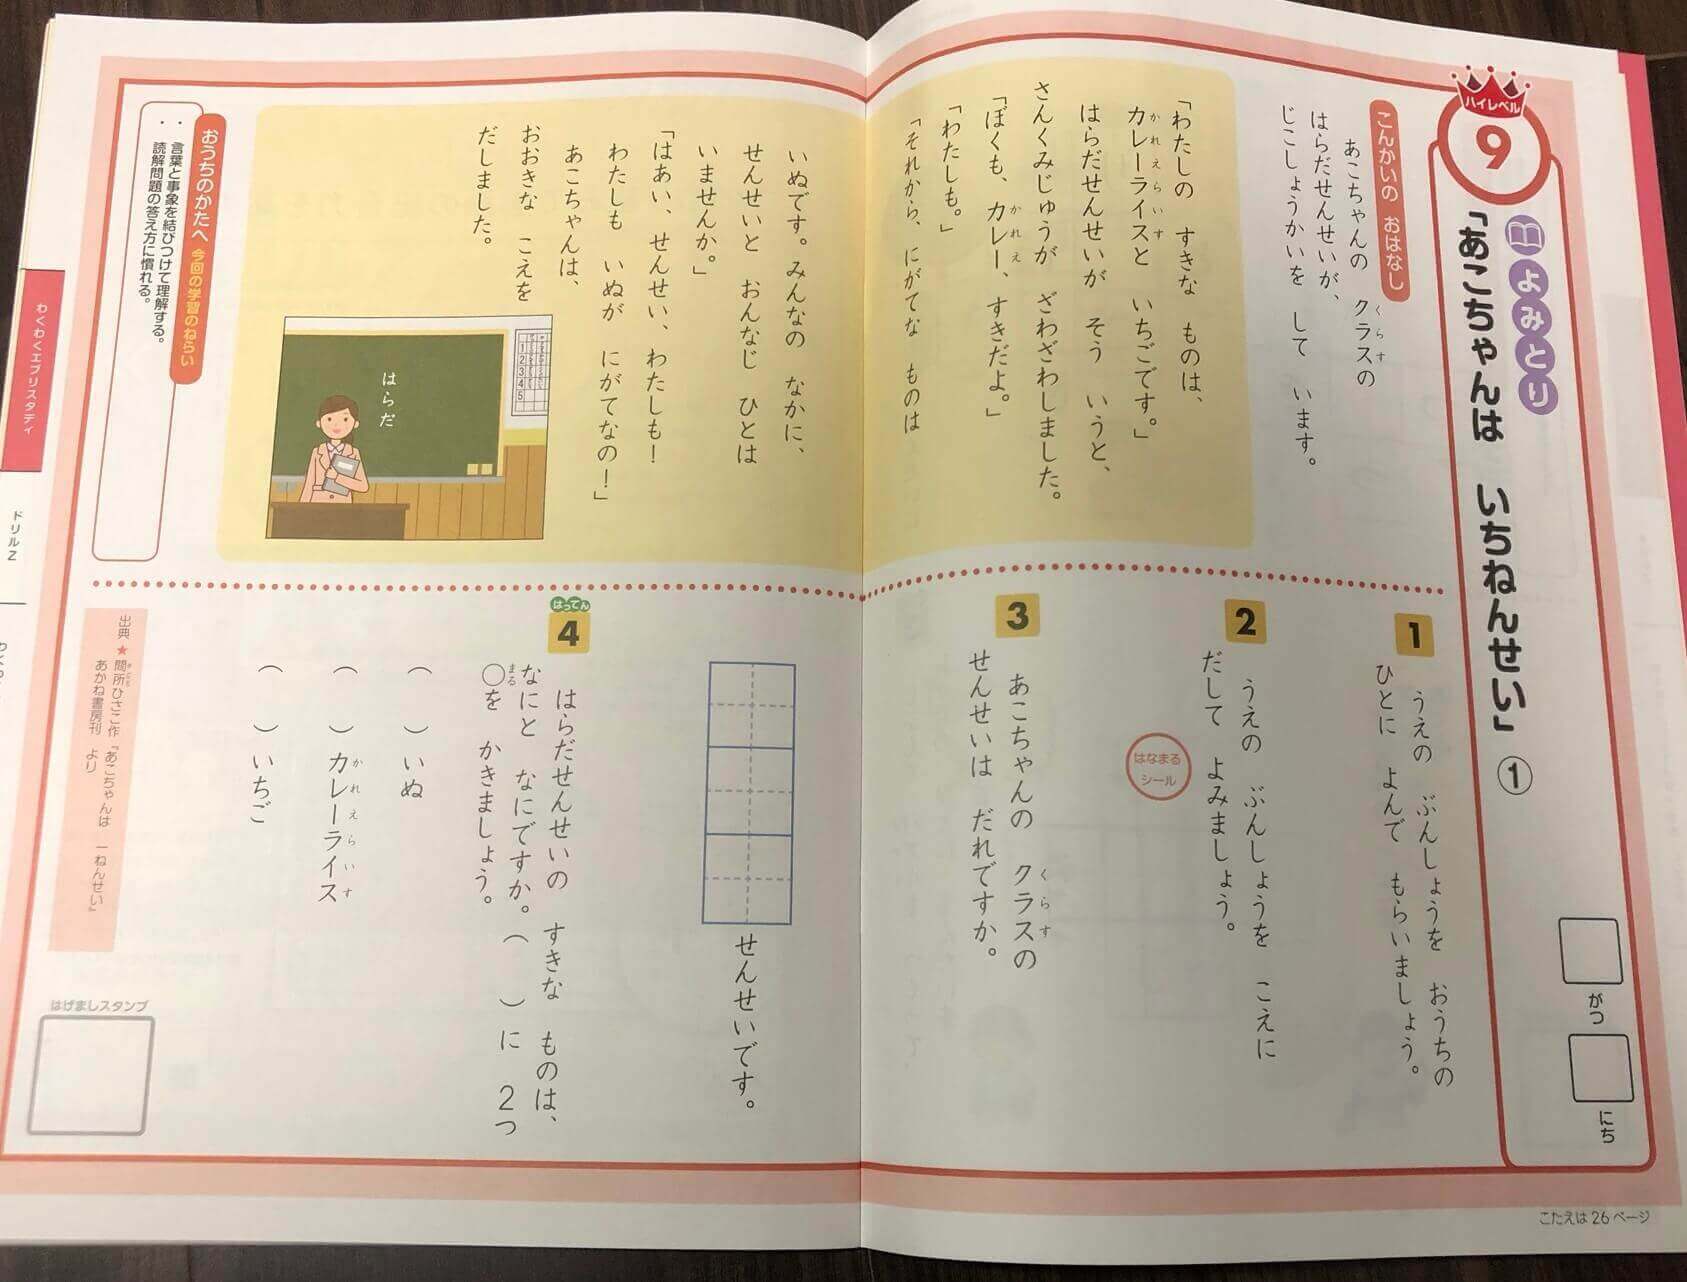 ハイレベル
9
よみとり
「あこちゃんは いちねんせい」①
がつ
にち
こんかいの おはなし
あこちゃんの クラスの
くらす
はらだせんせいが、
じこしょうかいを して います。
「わたしの すきな ものは、
カレーライスと いちごです。」
かれえらいす
はらだせんせいが そう いうと、
さんくみじゅうが ざわざわしました。
「ぼくも、カレー、すきだよ。」
かれえ
「わたしも。」
「それから、にがてな ものは
いぬです。みんなの なかに、
せんせいと おんなじ ひとは
いませんか。」
「はあい、せんせい、わたしも！
わたしも いぬが にがてなの！」
あこちゃんは、
おおきな こえを
だしました。
はらだ
1
2
3
4
5
おうちのかたへ 今回の学習のねらい
・言葉と事象を結びつけて理解する。
・読解問題の答え方に慣れる。
1
うえの ぶんしょうを おうちの
ひとに よんで もらいましょう。
2
うえの ぶんしょうを こえに
だして よみましょう。
はなまる
シール
3
あこちゃんの クラスの
くらす
せんせいは だれですか。
せんせいです。
はってん
4
はらだせんせいの すきな ものは、
なにと なにですか。( )に 2つ
○を かきましょう。
まる
( )いぬ
( )カレーライス
かれえらいす
( )いちご
出典★間所ひさこ作『あこちゃんは 一ねんせい』
あかね書房刊 より
はげましスタンプ
わくわくエブリスタディ
ドリルZ
こたえは26ページ